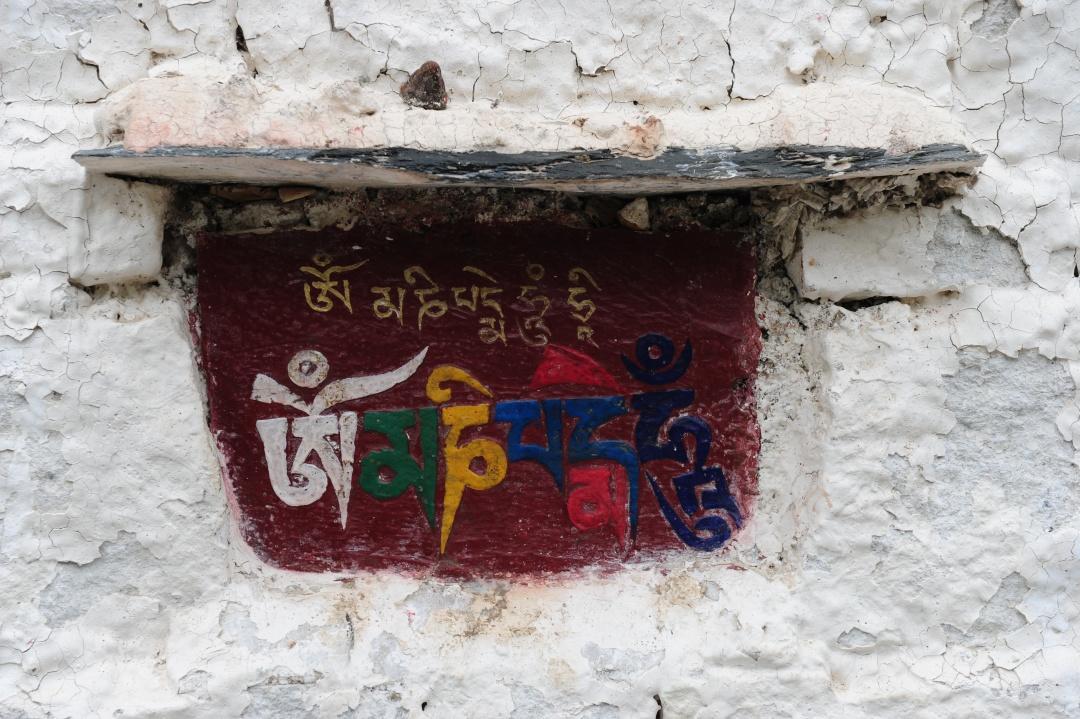 ཨོཾ མ ཎི པདྨེ ཧཱུྃ ཧྲཱི
ཨོཾ མ ཎི པདྨེ ཧཱུྃ